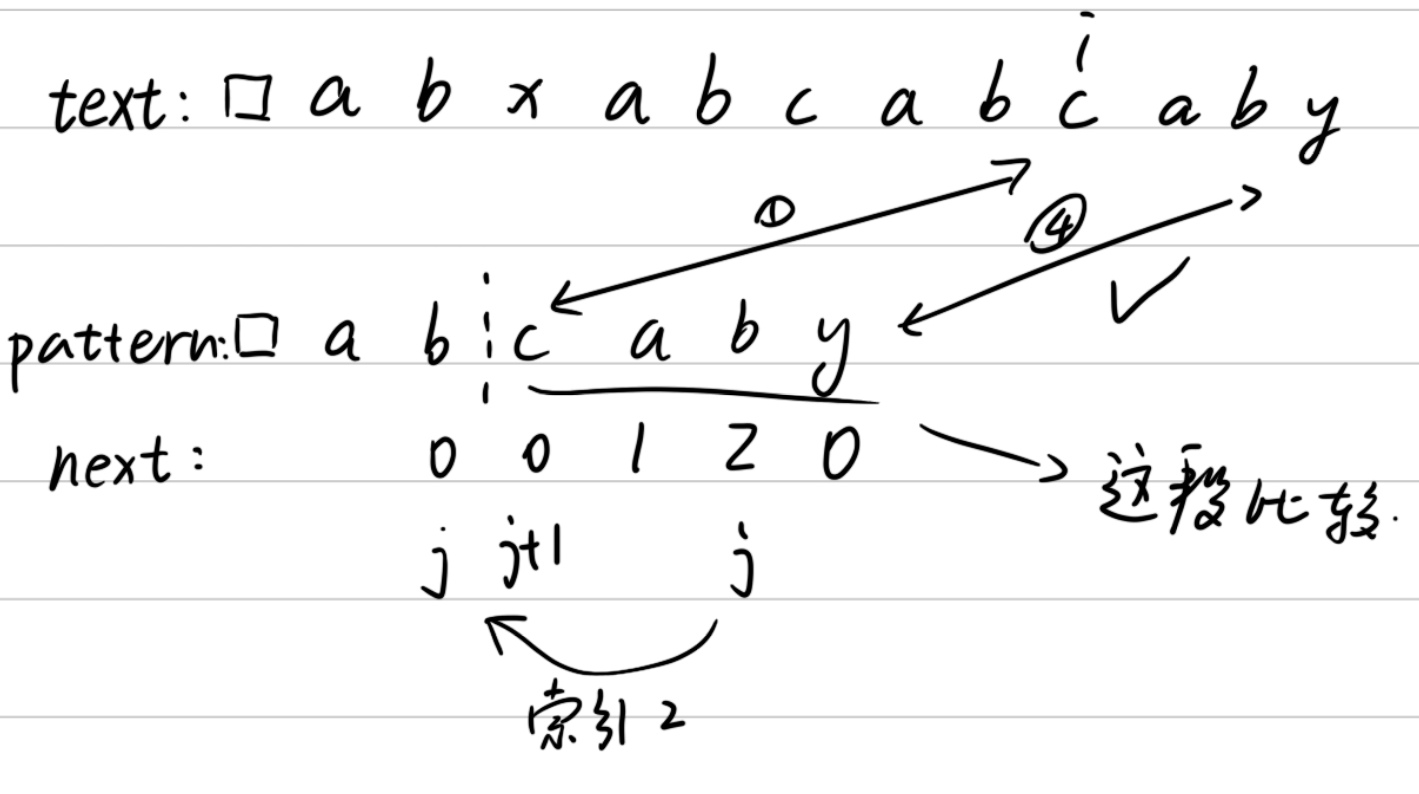 i
text: □ a b x a b c a b c a b y
① ④
pattern:□ a b c a b y
next: 0 0 1 2 0
这段比较.
j j+1 j
索引2